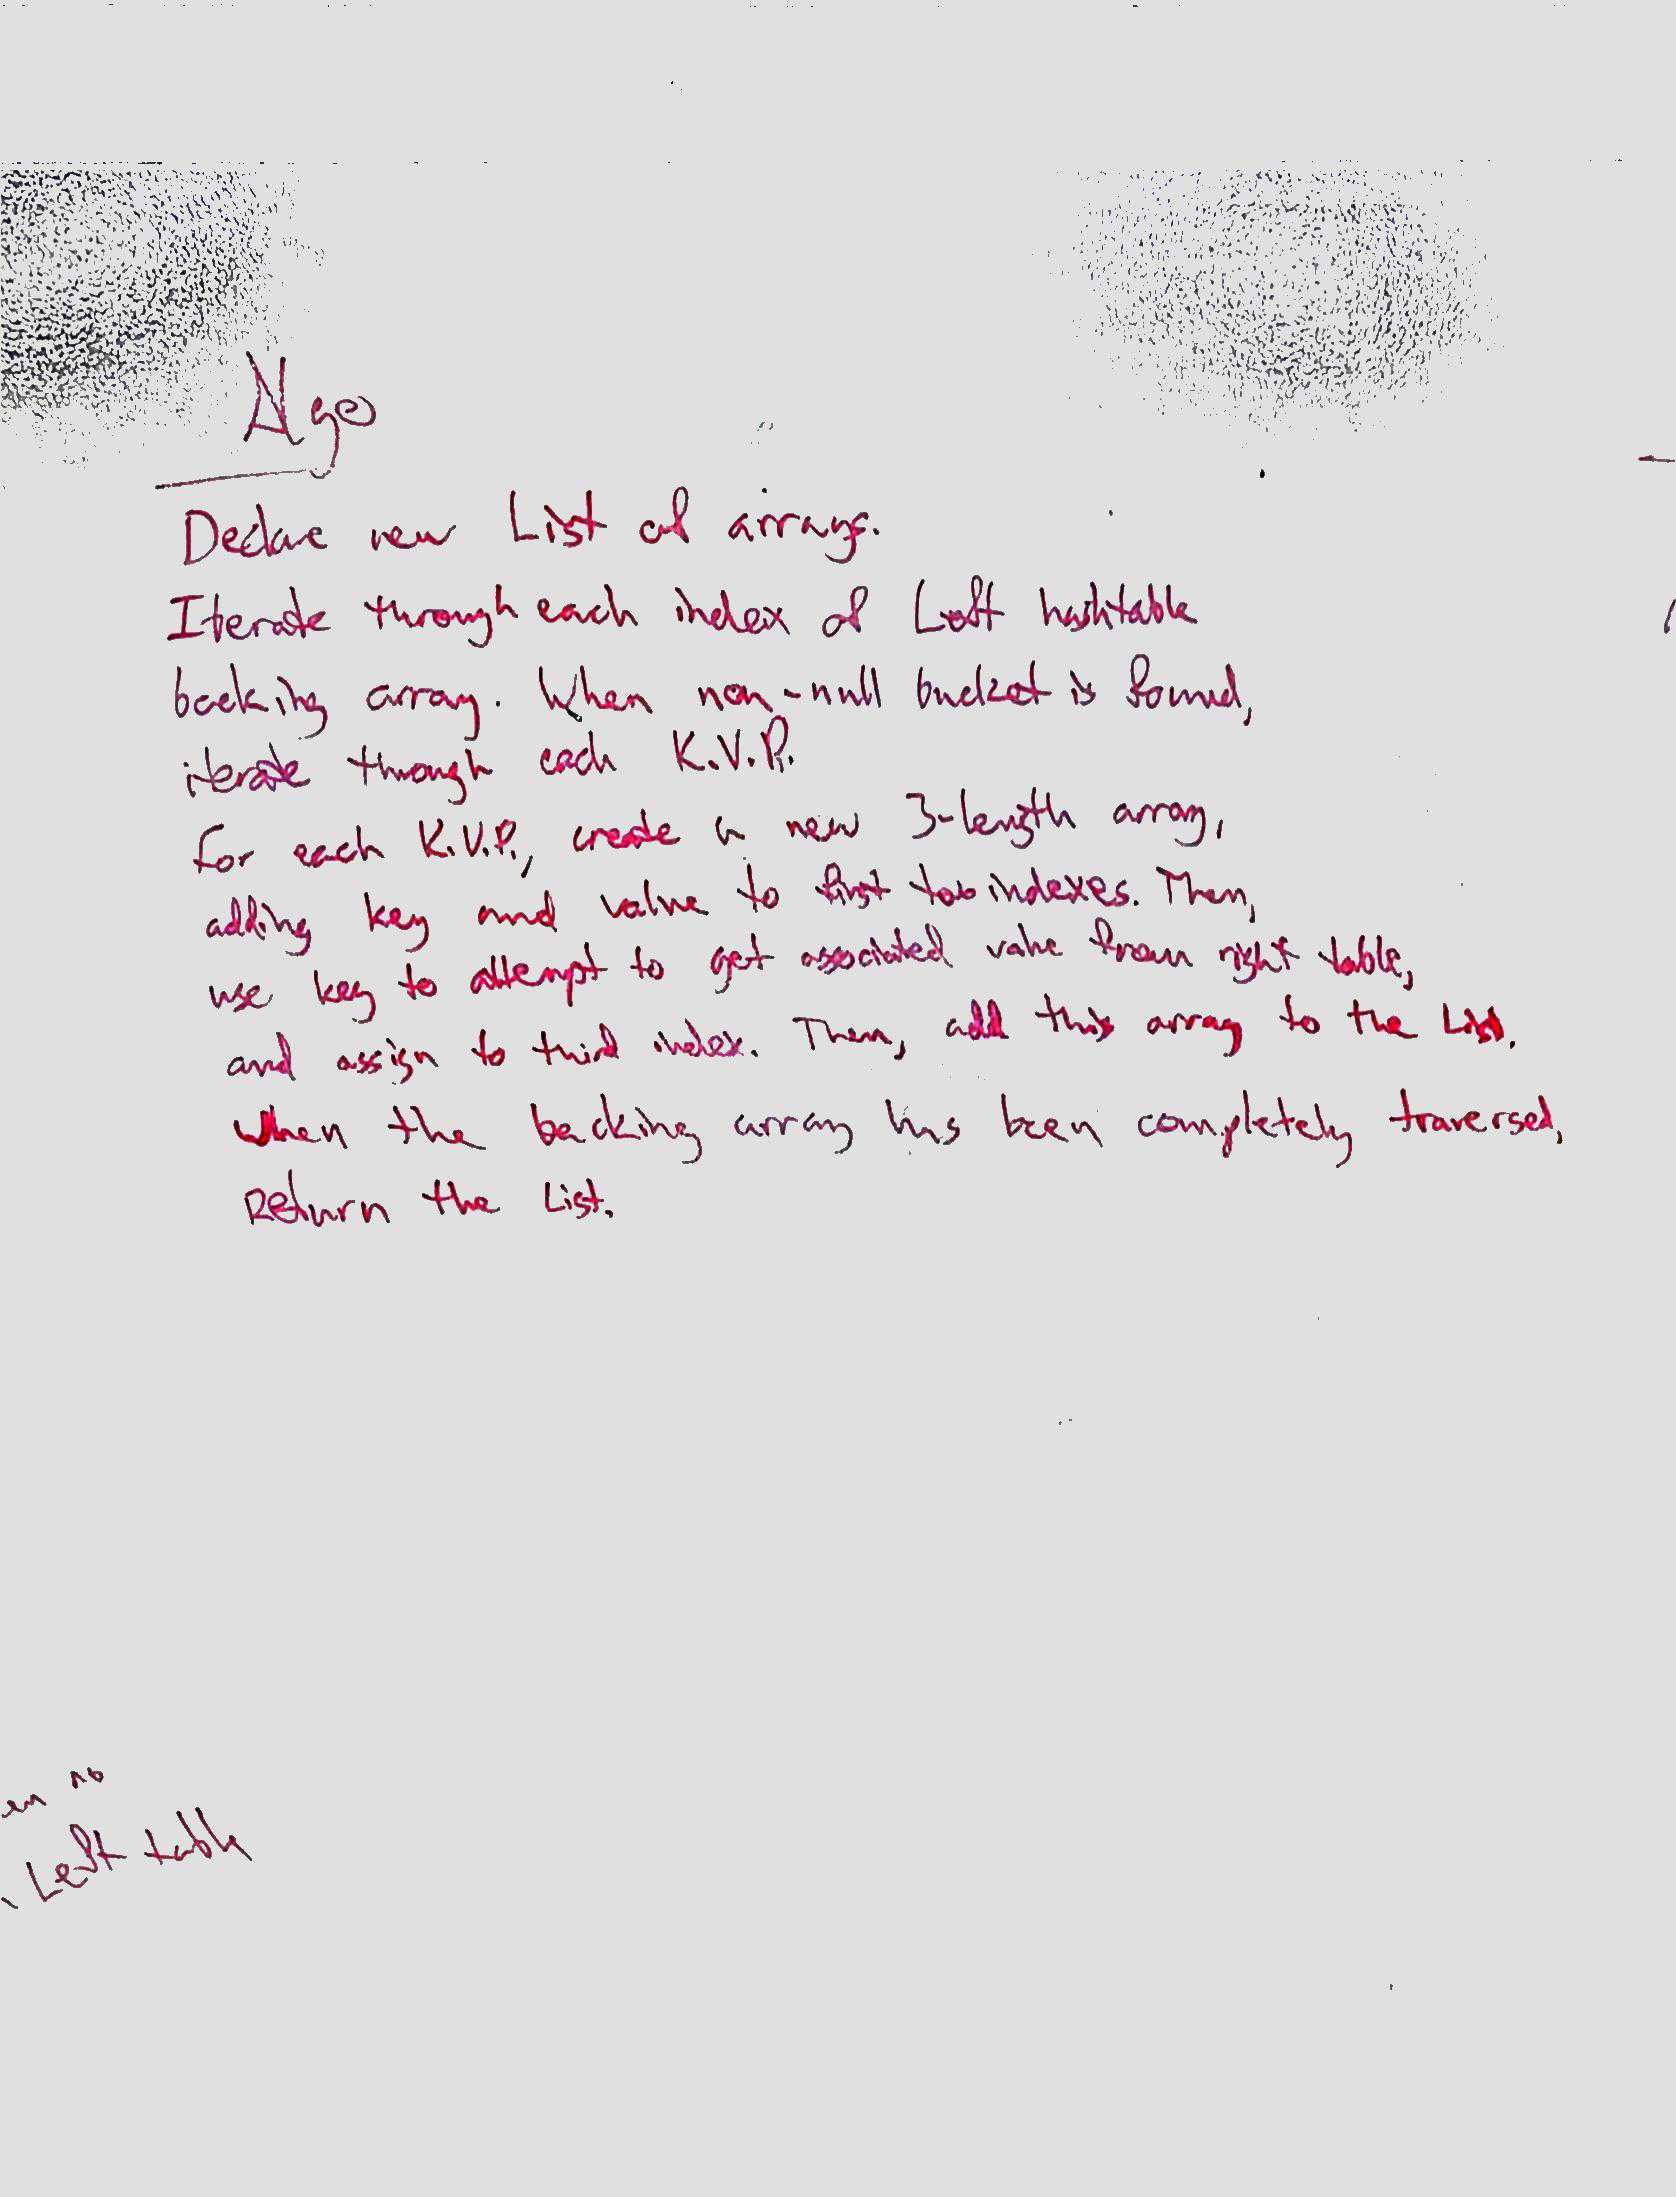 Algo
Declare new List of arrays.
Iterate through each index of Left hashtable
backing array. When non-null bucket is found,
iterate through each K.V.P.
for each K.V.P., create a new 3-length array,
adding key and value to first two indexes. Then,
use key to attempt to get associated value from right table,
and assign to third index. Then, add this array to the List.
When the backing array has been completely traversed,
Return the List.
no
Left table